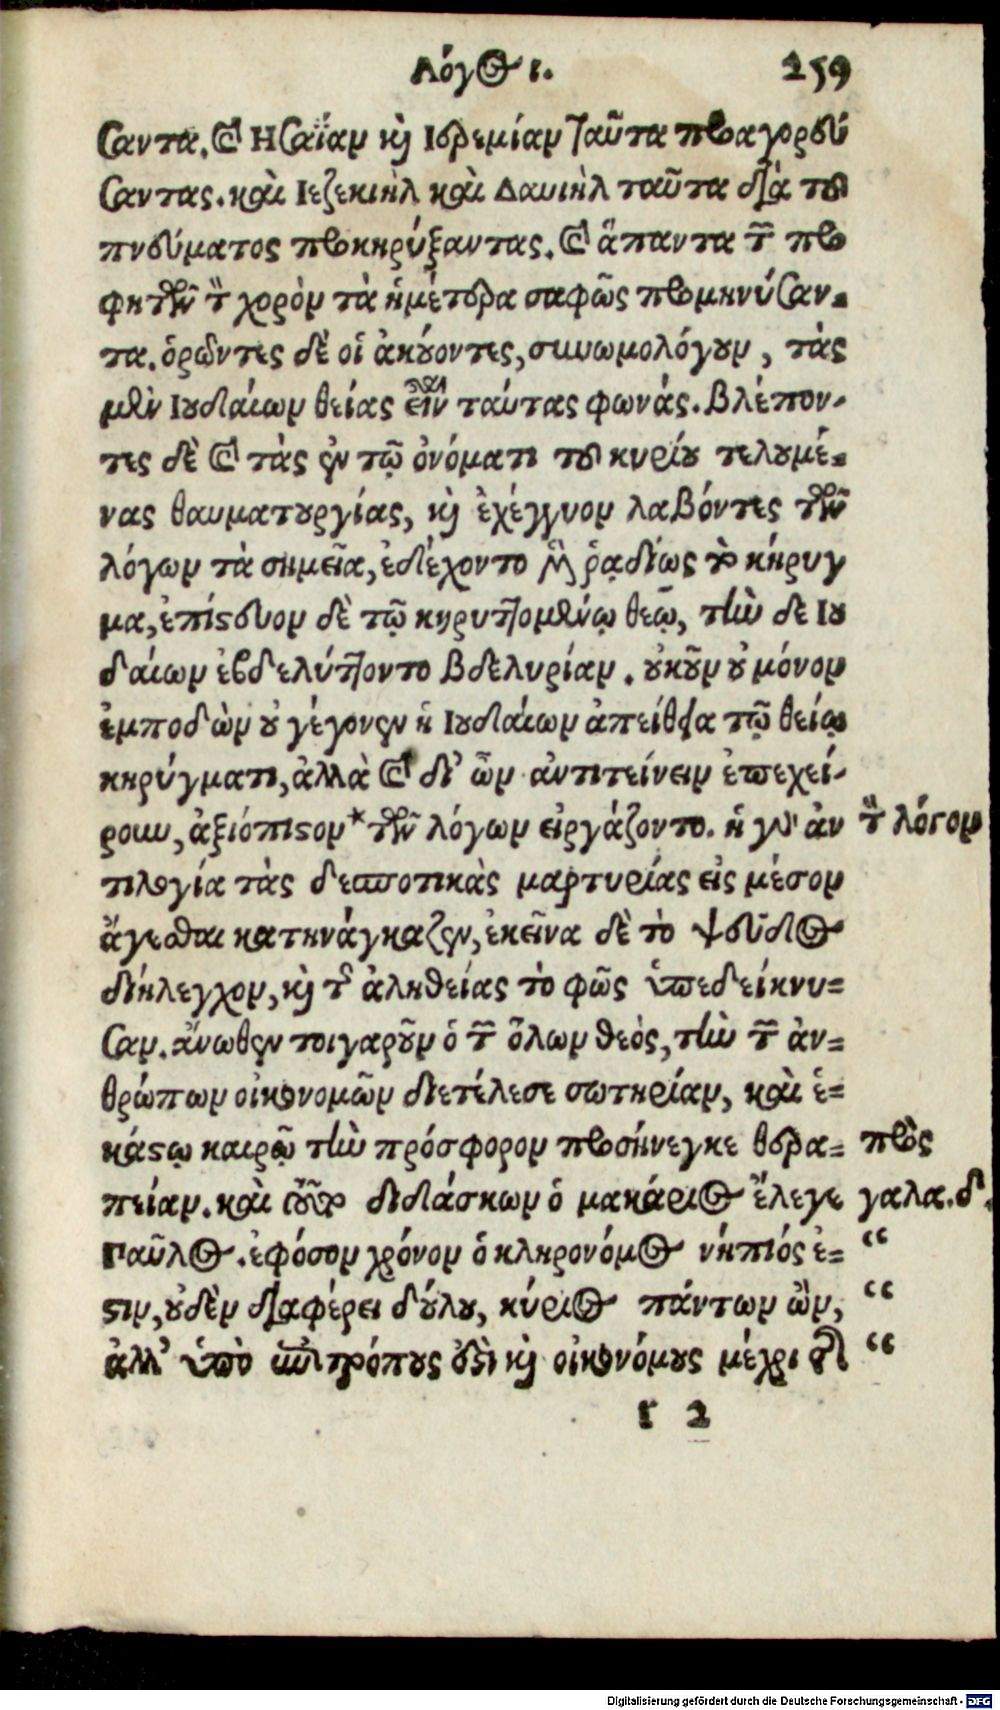 Λόγος ι. 259
σαντα. καὶ Ησαΐαν καὶ Ιερεμίαν ταῦτα προαγορεύ
σαντας. καὶ Ιεζεκιὴλ καὶ Δανιὴλ ταῦτα διὰ τοῦ
πνεύματος προκηρύξαντας. καὶ ἅπαντα τῶν προ
φητῶν τὸν χορὸν τὰ ἡμέτερα σαφῶς προμηνύσαν-
τα. ὁρῶντες δὲ οἱ ἀκούοντες, συνωμολόγουν, τὰς
μὲν Ιουδαίων θείας εἶναι ταύτας φωνάς. βλέπον-
τες δὲ καὶ τὰς ἐν τῷ ὀνόματι τοῦ κυρίου τελουμέ-
νας θαυματουργίας, καὶ ἐχέγγυον λαβόντες τῶν
λόγων τὰ σημεῖα, ἐδέχοντο μὲν ῥᾳδίως τὸ κήρυγ
μα, ἐπίστευον δὲ τῷ κηρυττομένῳ θεῷ, τὴν δε Ιου
δαίων ἐβδελύττοντο βδελυρίαν. οὐκοῦν οὐ μόνον
ἐμποδὼν οὐ γέγονεν ἡ Ιουδαίων ἀπείθεια τῷ θείῳ
κηρύγματι, ἀλλὰ καὶ δι' ὧν ἀντιτείνειν ἐπεχεί-
ρουν, ἀξιόπιστον* τῶν λόγων εἰργάζοντο. ἡ γὰρ ἀν τὸν λόγον
τιλογία τὰς δεσποτικὰς μαρτυρίας εἰς μέσον
ἄγεσθαι κατηνάγκαζεν, ἐκεῖνα δὲ τὸ ψεῦδος
διήλεγχον, καὶ τῆς ἀληθείας τὸ φῶς ὑπεδείκνυ-
σαν. ἄνωθεν τοιγαροῦν ὁ τῶν ὅλων θεὸς, τὴν τῶν ἀν-
θρώπων οἰκονομῶν διετέλεσε σωτηρίαν, καὶ ἑ-
κάστῳ καιρῷ τὴν πρόσφορον προσήνεγκε θερα- πρὸς
πείαν. καὶ τοῦτο διδάσκων ὁ μακάριος ἔλεγε γαλα. δ.
Παῦλος. ἐφόσον χρόνον ὁ κληρονόμος νήπιός ἐ- “
στιν, οὐδὲν διαφέρει δούλου, κύριος πάντων ὢν, “
ἀλλ' ὑπὸ ἐπιτρόπους ἐστὶ καὶ οἰκονόμους μέχρι τῆς “
r 2
Digitalisierung gefördert durch die Deutsche Forschungsgemeinschaft - DFG